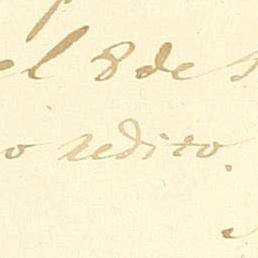 el 8 de
o redito.